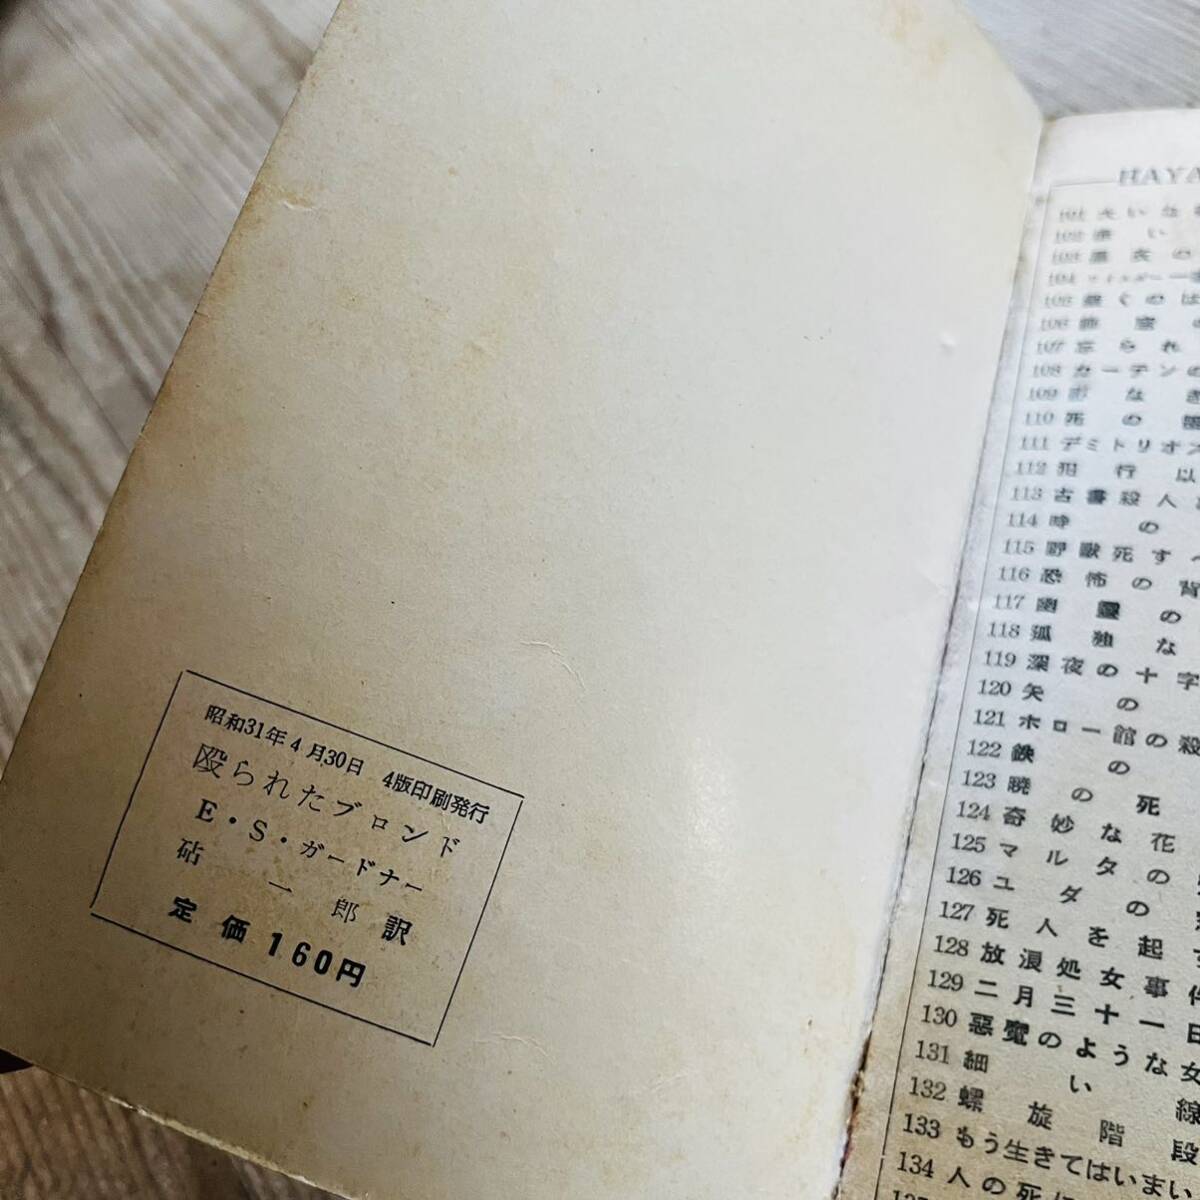 昭和31年4月30日 4版印刷発行
殴られたブロンド
E・S・ガードナー
砧一郎訳
定価 160円
HAYA
101 大い
102 い
103 衣の
104
105 継ぐのは
106 の
107 忘られ
108 カーテンの
109 影なき
110 死の
111 デミトリオス
112 犯行以
113 古書殺人
114 時の
115 野獣死すべ
116 恐怖の背
117 幽霊の
118 孤独な
119 深夜の十字
120 矢の
121 ホロー館の殺
122 鉄の
123 暁の死
124 奇妙な花
125 マルタの
126 ユダの
127 死人を起す
128 放浪処女事件
129 二月三十一日
130 悪魔のような女
131 細い線
132 螺旋階段
133 もう生きてはいまい
134 人の死